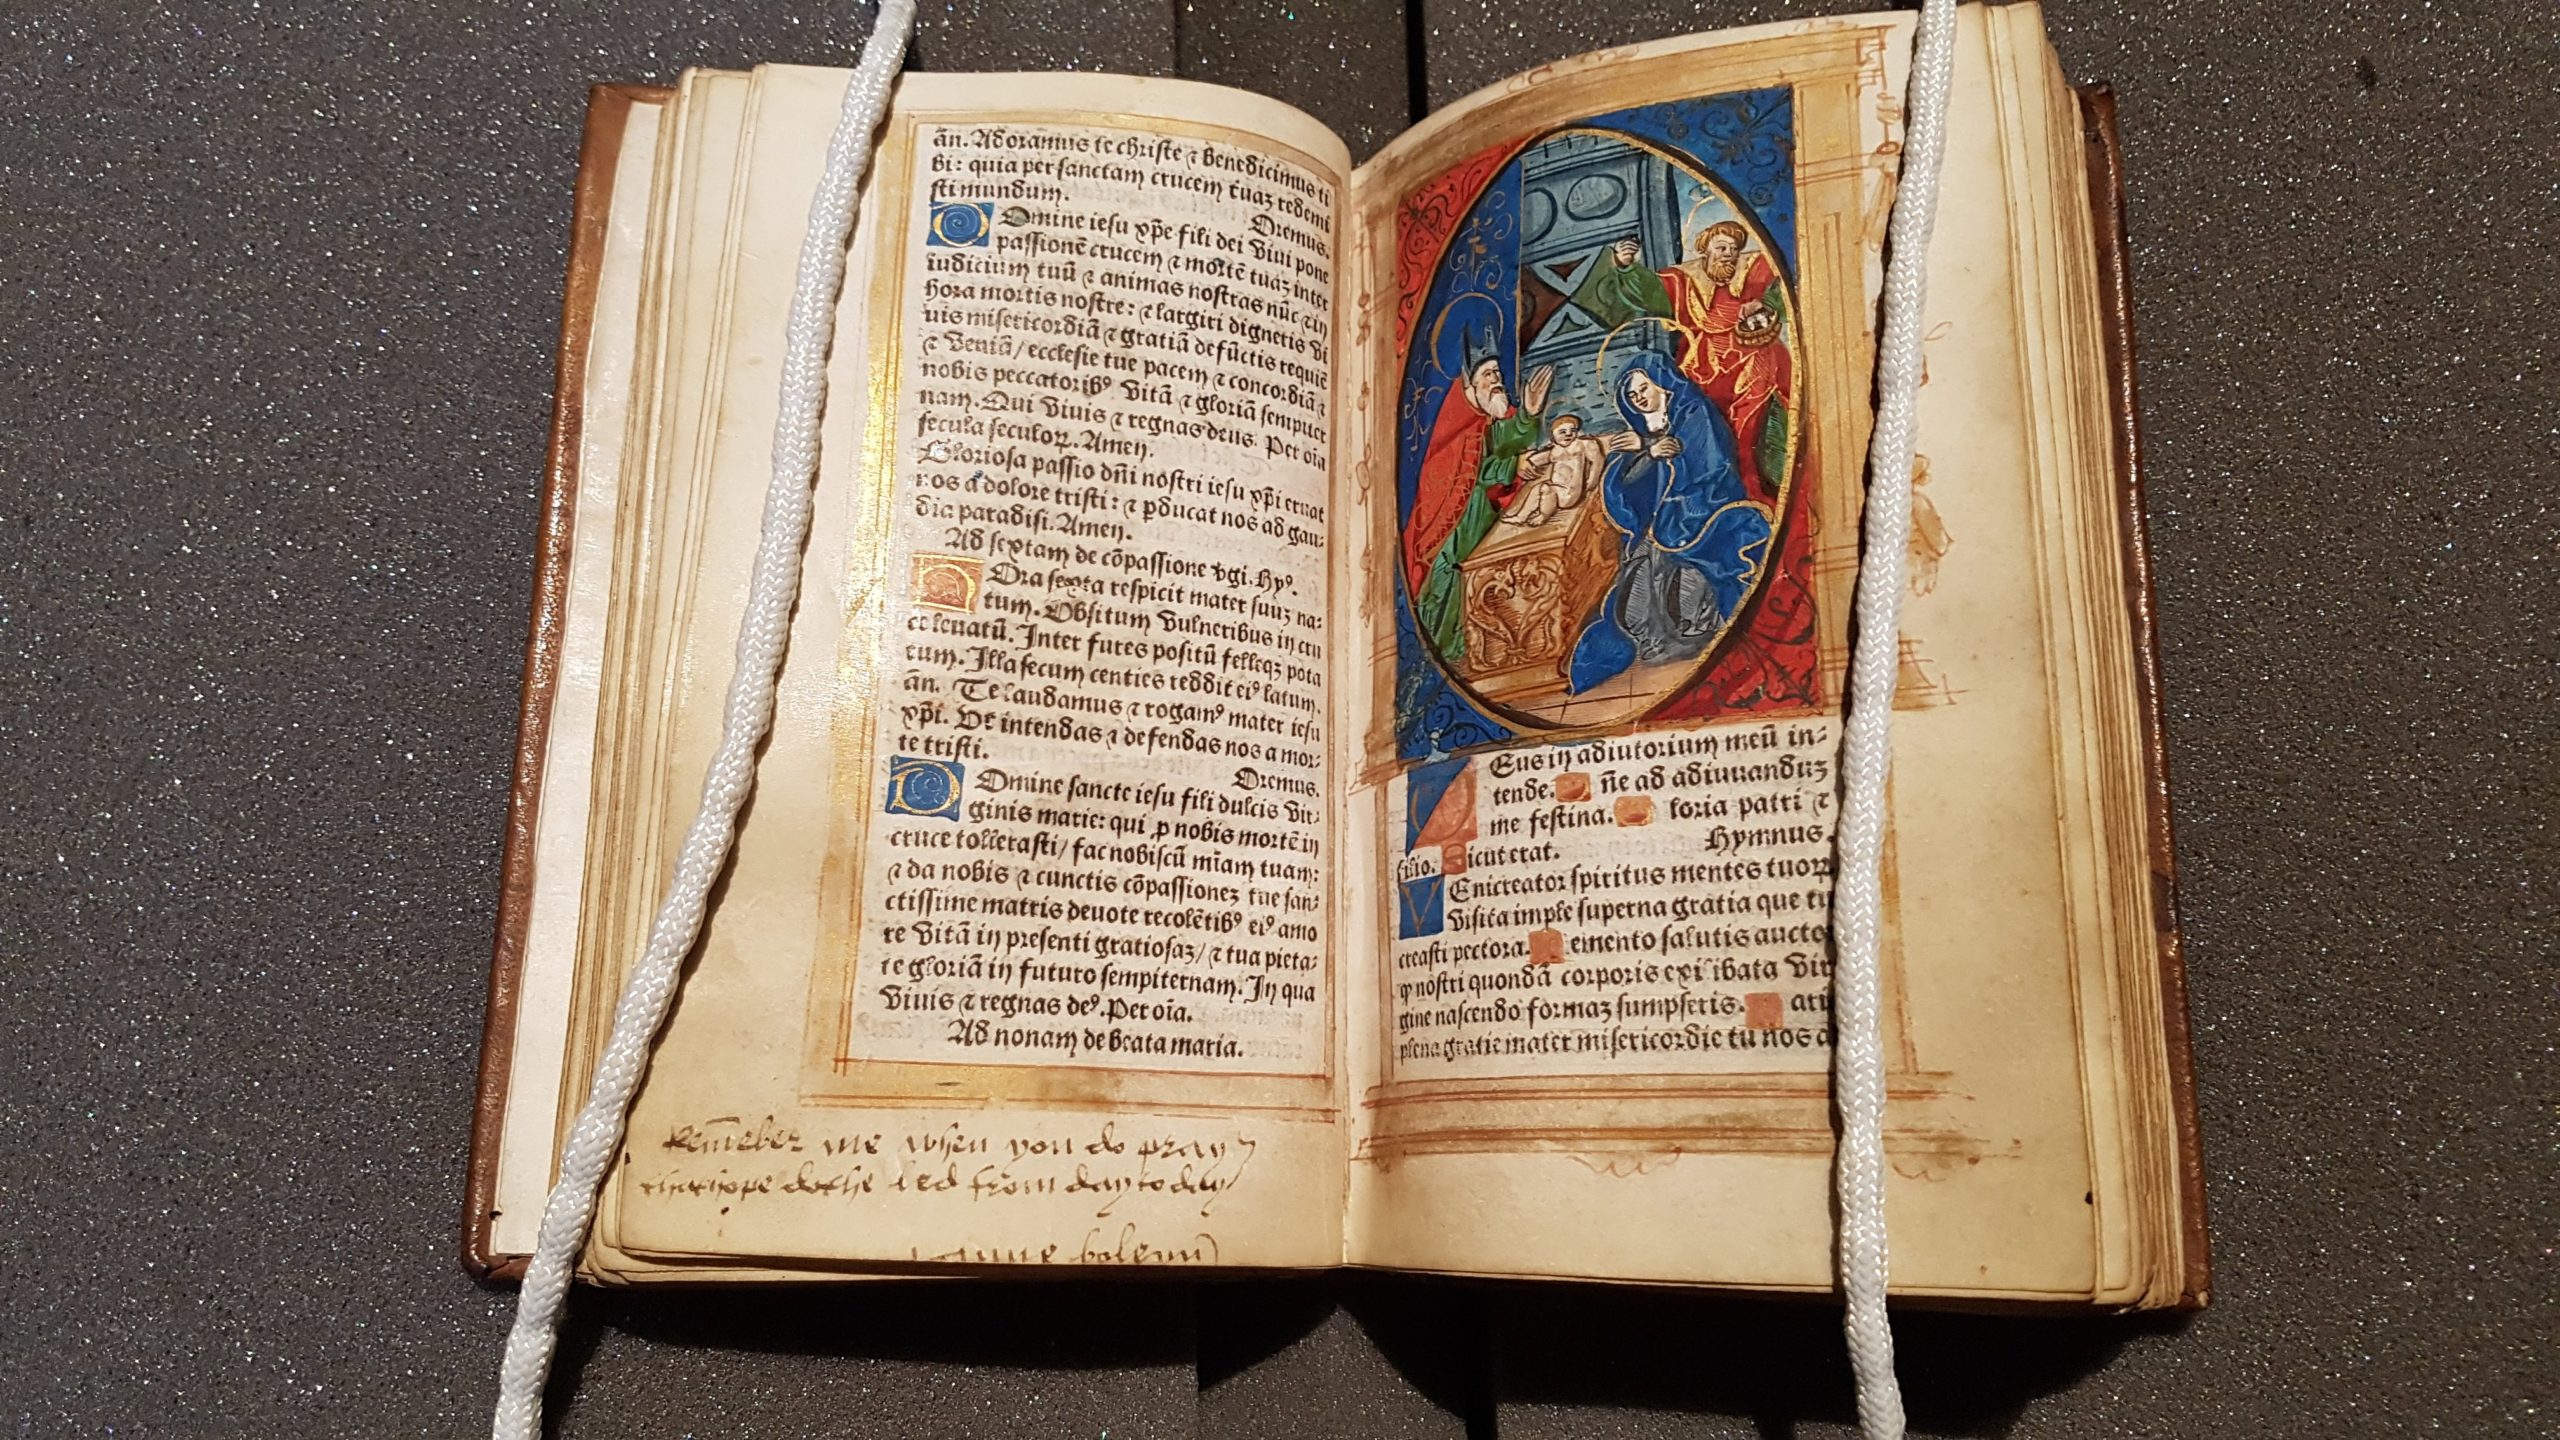 añ. Adoramus te christe ⁊ benedicimus ti
bi: quia per sanctam crucem tuaʒ redemi
sti mundum. Oremus.
Domine iesu xp̄e fili dei vivi pone
passionē crucem ⁊ mortē tuaʒ inter
iudicium tuū ⁊ animas nostras nūc ⁊ in
hora mortis nostre: ⁊ largiri digneris vi
uis misericordiā ⁊ gratiā defūctis requiē
⁊ veniā/ ecclesie tue pacem ⁊ concordiā ⁊
nobis peccatoribꝰ vitā ⁊ gloriā sempiter
nam. Qui viuis ⁊ regnas deus. Per oīa
secula seculoꝝ. Amen.
Gloriosa passio dn̄i nostri iesu xp̄i eruat
nos a dolore tristi: ⁊ ꝑducat nos ad gau⸗
dia paradisi. Amen.
Ad sextam de cōpassione v̄gi. Hyꝰ.
Hora sexta respicit mater suuʒ na⸗
tum. Obsitum vulneribus in cru
ce leuatū. Inter fures positū felleqʒ pota
tum. Illa secum centies reddit eiꝰ latum.
añ. Te laudamus ⁊ rogamꝰ mater iesu
xp̄i. Ut intendas ⁊ defendas nos a mor⸗
te tristi. Oremus.
Domine sancte iesu fili dulcis vir⸗
ginis marie: qui ꝓ nobis mortē in
cruce tollerasti/ fac nobiscū mīam tuam:
⁊ da nobis ⁊ cunctis cōpassioneʒ tue san⸗
ctissime matris deuote recolētibꝰ eiꝰ amo
re vitā in presenti gratiosaʒ/ ⁊ tua pieta⸗
te gloriā in futuro sempiternam. In qua
viuis ⁊ regnas deꝰ. Per oīa.
Ad nonam de beata maria.
Remēber me when you do pray
hope dothe led from day to day
anne boleyn
Deus in adiutorium meū in⸗
tende. ñe ad adiuuanduʒ
me festina. loria patri ⁊
filio. Sicut erat. Hymnus.
Veni creator spiritus mentes tuoꝝ
visita imple superna gratia que tu
creasti pectora. emento salutis aucto
ꝙ nostri quondā corporis ex illibata vir
gine nascendo formaʒ sumpseris. ari
plena gratie mater misericordie tu nos a